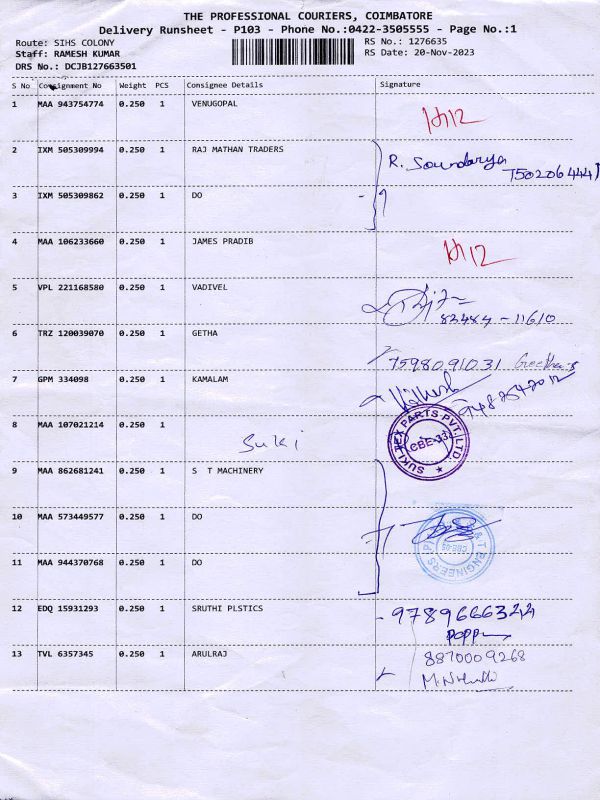 THE PROFESSIONAL COURIERS, COIMBATORE
Delivery Runsheet - P103 - Phone No.:0422-3505555 - Page No.:1
Route: SIHS COLONY
Staff: RAMESH KUMAR
DRS No.: DCJB127663501
RS No.: 1276635
RS Date: 20-Nov-2023
S No Consignment No Weight PCS Consignee Details Signature
1 MAA 943754774 0.250 1 VENUGOPAL
2 IXM 505309994 0.250 1 RAJ MATHAN TRADERS R. Soundarya
3 IXM 505309862 0.250 1 DO
4 MAA 106233660 0.250 1 JAMES PRADIB
5 VPL 221168580 0.250 1 VADIVEL
6 TRZ 120039070 0.250 1 GETHA 7598091031
7 GPM 334098 0.250 1 KAMALAM
8 MAA 107021214 0.250 1 Suki
SUKI TEX PARTS PVT. LTD.
9 MAA 862681241 0.250 1 S T MACHINERY
10 MAA 573449577 0.250 1 DO
11 MAA 944370768 0.250 1 DO
12 EDQ 15931293 0.250 1 SRUTHI PLSTICS
13 TVL 6357345 0.250 1 ARULRAJ 8870009268